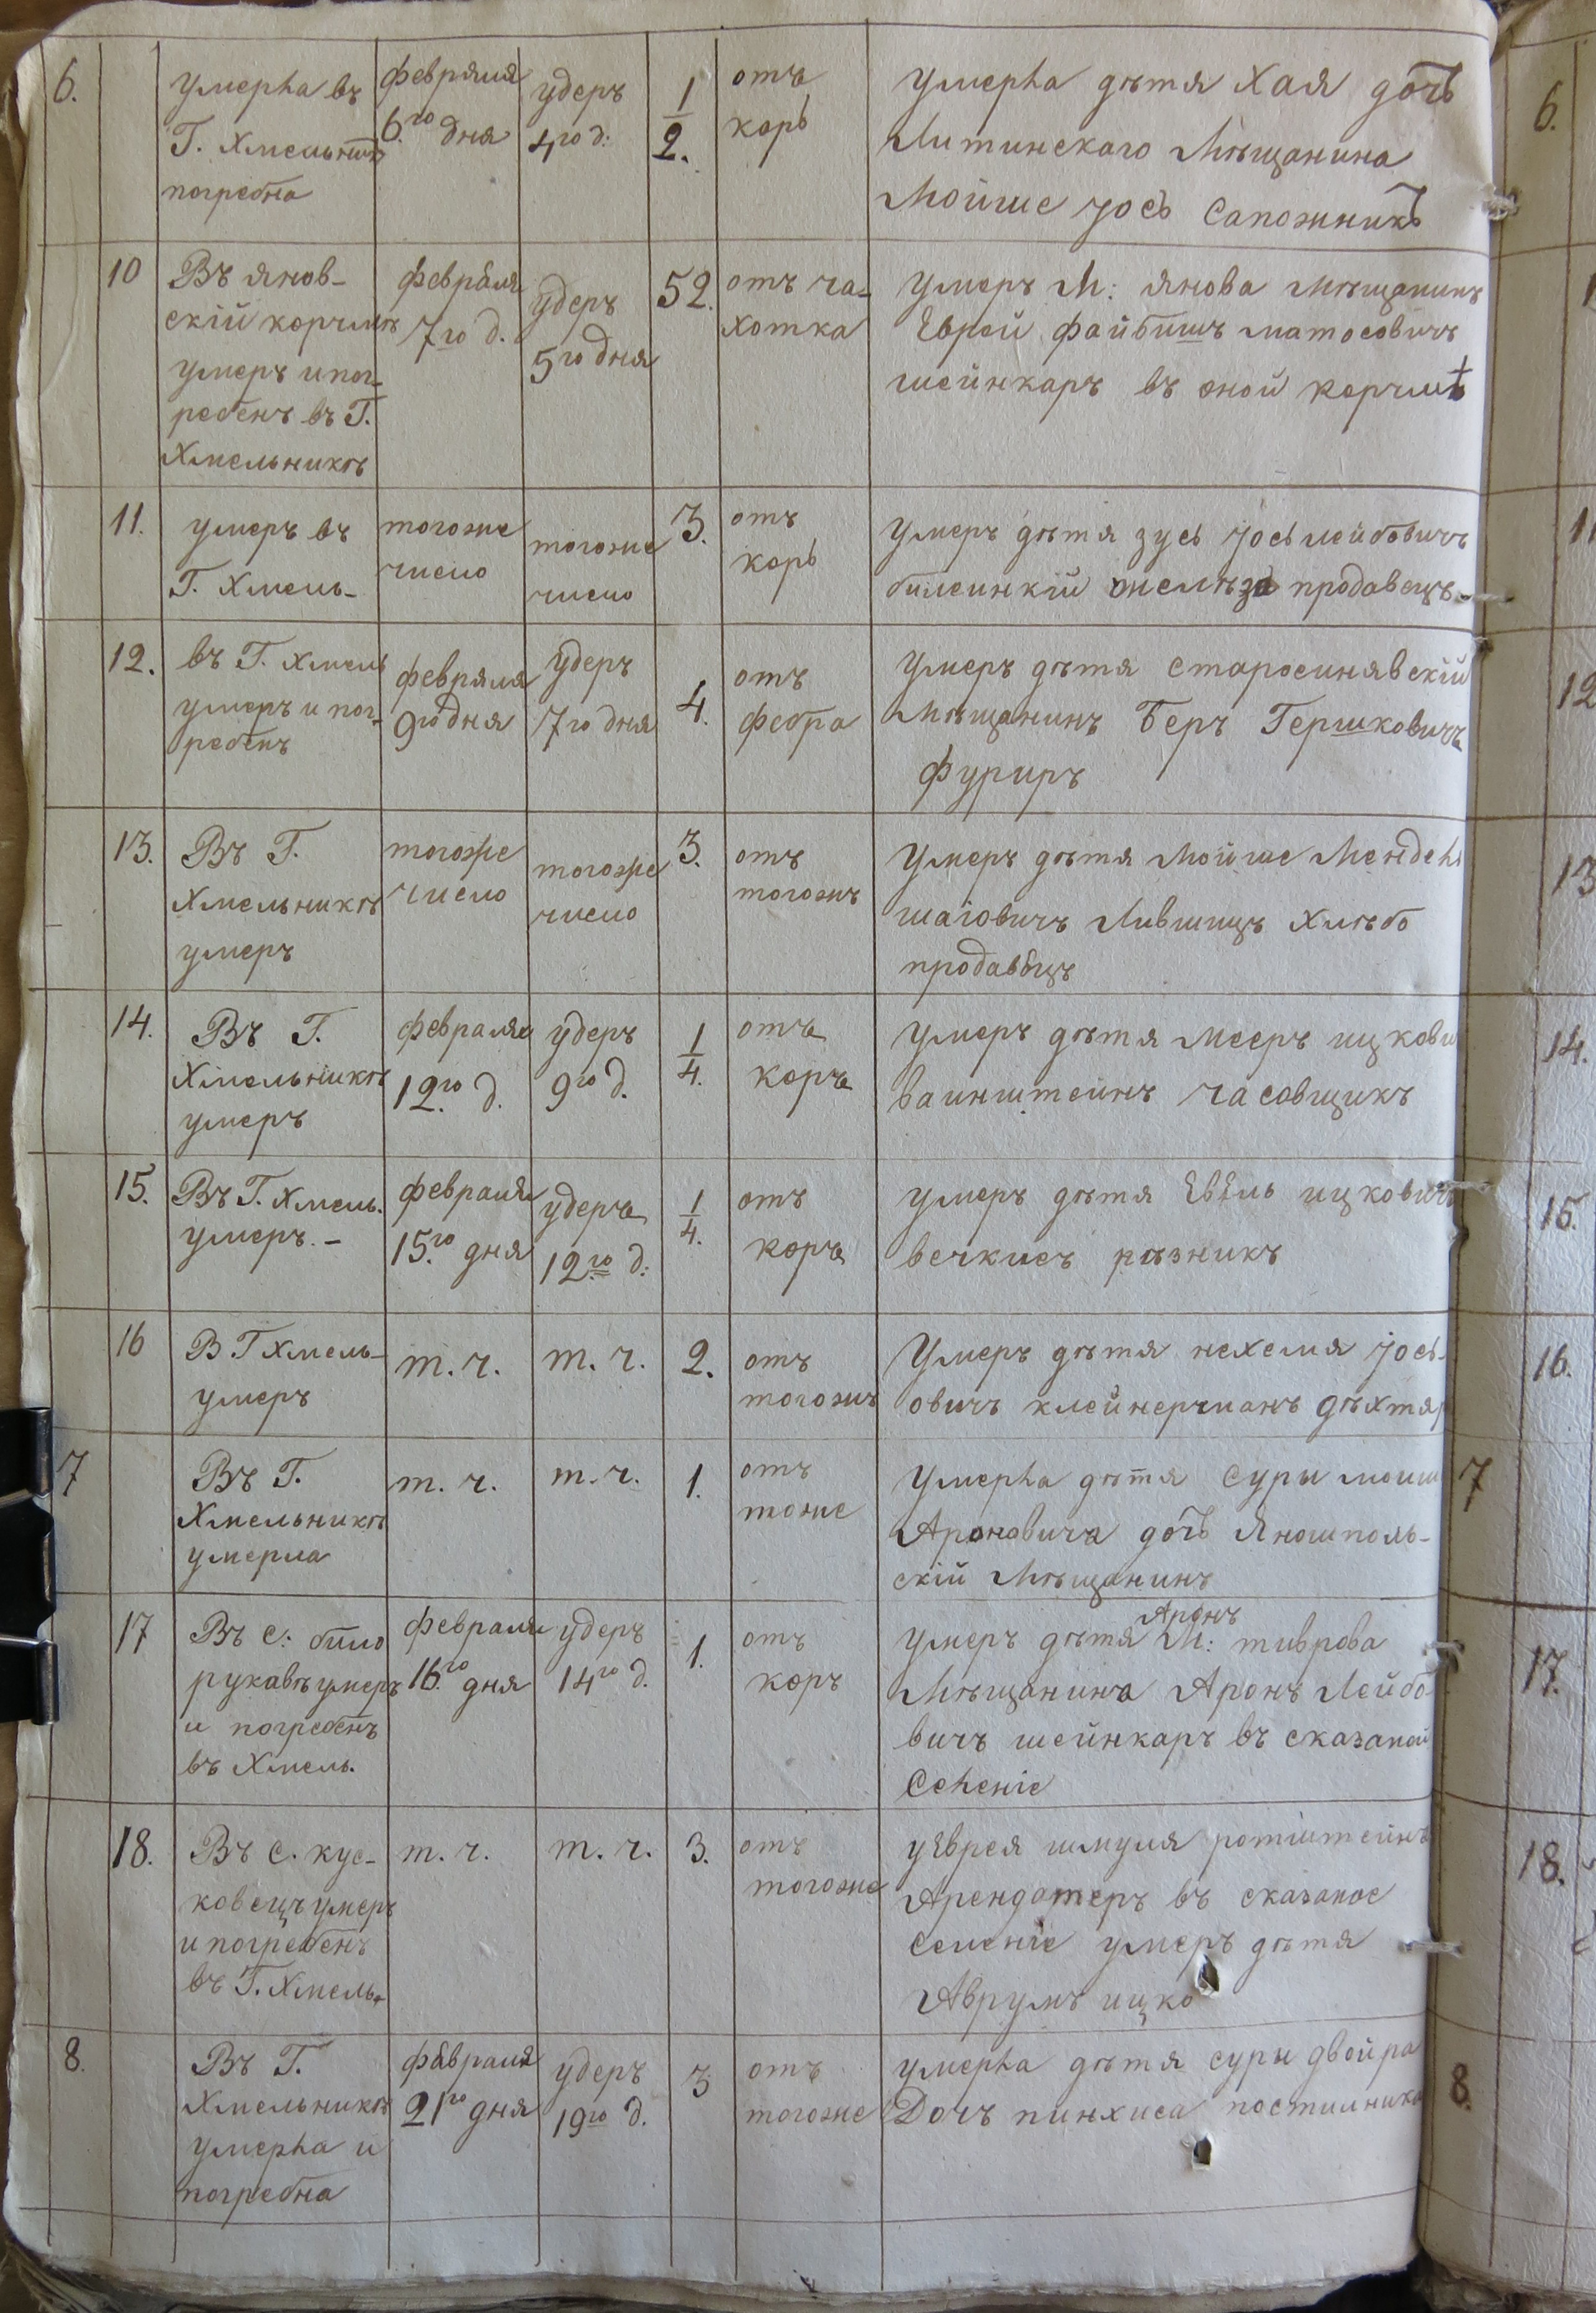 6.
умерла въ
Г. Хмельник
погребна
февряля
6.го дня
удеръ
4го д:
1/2.
отъ
корь
умерла дѣтя Хая дочь
Литинскаго Мѣщанина
Мойше Іось Сапожникъ
10
Въ янов-
скій корчмѣ
умеръ и пог-
ребенъ въ Г.
Хмельникѣ
февраля
7го д.
удеръ
5го дня
52.
отъ ча-
хотка
умеръ М: Янова Мѣщанинъ
Еврей файбишъ матосовичъ
шейнкаръ въ оной корчмѣ
11.
умеръ въ
Г. Хмель-
тогоже
число
тогоже
число
3.
отъ
корь
умеръ дѣтя зусь Іосьлейбовичъ
билеинкій желѣза продавецъ
12.
въ Г. Хмель
умеръ и пог-
ребенъ
февряля
9го дня
удеръ
7го дня
4.
отъ
фебра
умеръ дѣтя старосинявскій
Мѣщанинъ Беръ Гершковичъ
фуриръ
13.
Въ Г.
Хмельникѣ
умеръ
тогоже
число
тогоже
число
3.
отъ
тогожъ
умеръ дѣтя Мойше Мендель
шаіовичъ Лившицъ Хлѣбо
продавецъ
14.
Въ Г.
Хмельникѣ
умеръ
февраля
12.го д.
удеръ
9го д.
1/4.
отъ
коръ
умеръ дѣтя Мееръ ицкови
ваинштеинъ часовщикъ
15.
Въ Г. Хмель.
умеръ. -
февраля
15.го дня
удеръ
12го д:
1/4.
отъ
коръ
умеръ дѣтя Евель ицковичъ
вечкисъ рѣзникъ
16
В Г Хмель-
умеръ
т. ч.
т. ч.
2.
отъ
тогожъ
умеръ дѣтя нехемя Іось-
овичъ клейнерманъ дѣхтяр
7
Въ Г.
Хмельникѣ
умерла
т. ч.
т. ч.
1.
отъ
тоже
умерла дѣтя Суры моиш
Ароновича дочь Яношполь-
скій Мѣщанинъ
17
Въ с: било
рукавѣ умеръ
и погребенъ
въ Хмель.
февраля
16.го дня
удеръ
14го д.
1.
отъ
коръ
Аронъ
умеръ дѣтя М: тиврова
Мѣщанина Аронъ Лейбо-
вичъ шейнкаръ въ сказаной
Селеніе
18.
Въ с. кус-
ковецъ умеръ
и погребенъ
въ Г. Хмель.
т. ч.
т. ч.
3.
отъ
тогоже
уЕврея шмуля ротштейнъ
Арендатеръ въ сказаное
селеніе умеръ дѣтя
Аврумъ ицко
8.
Въ Г.
Хмельникѣ
умерла и
погребна
февраля
21го дня
удеръ
19го д.
3
отъ
тогоже
умерла дѣтя суры двойра
Дочъ пинхиса постилника
6.
11
12
13
14.
15.
16.
7
17.
18.
8.